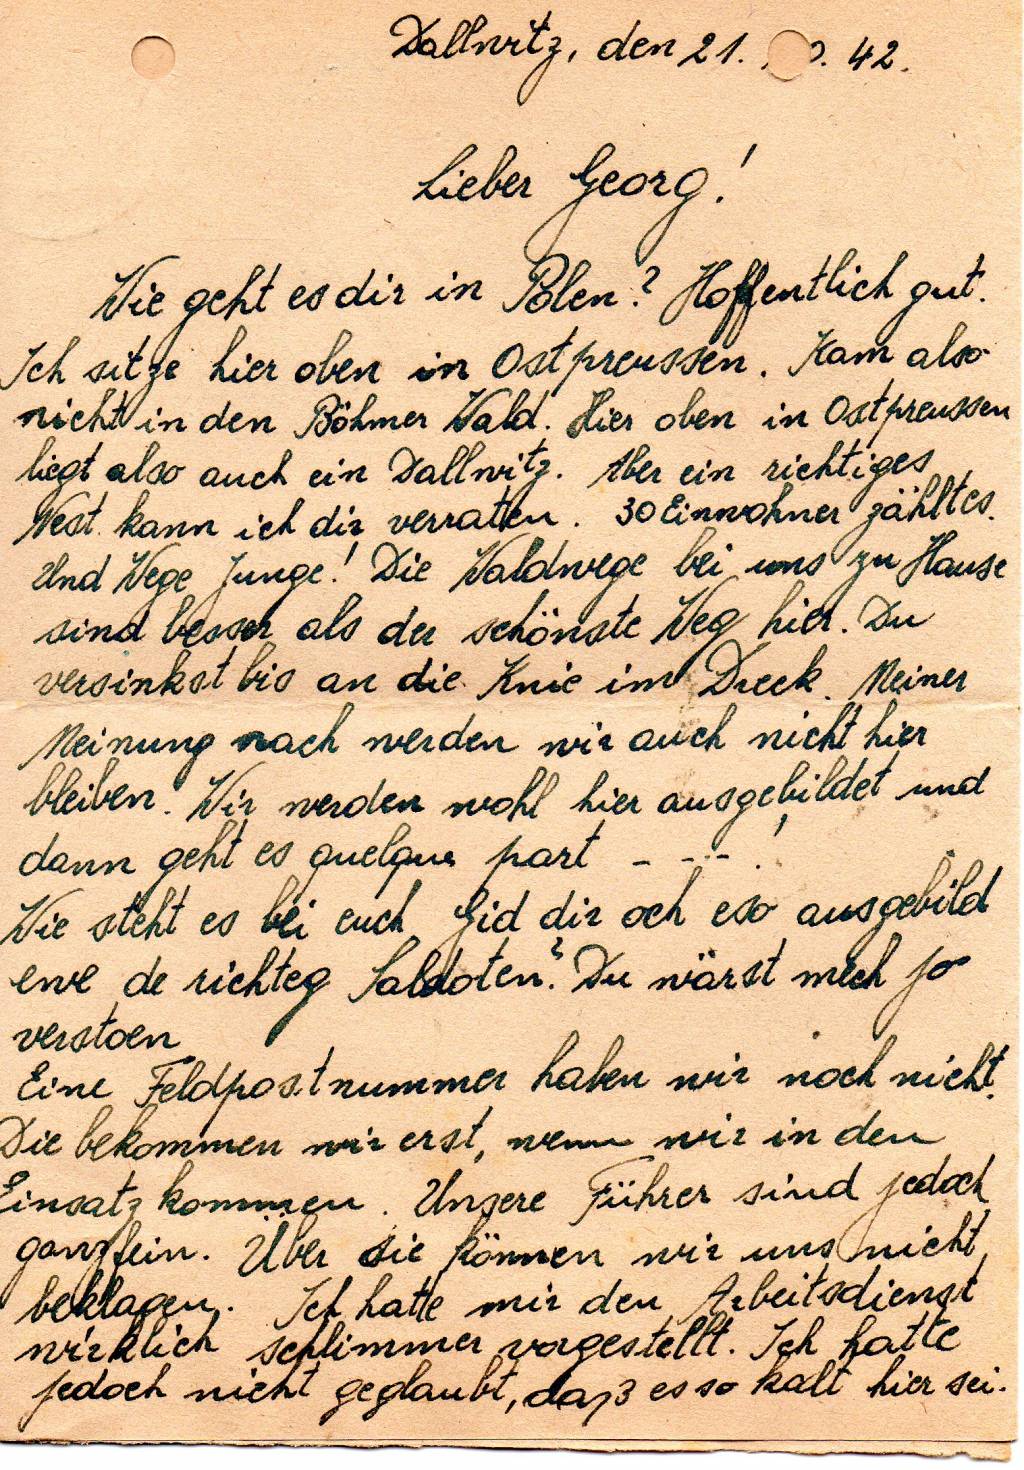 Dallwitz, den 21. 42.
Lieber Georg!
Wie geht es dir in Polen? Hoffentlich gut.
Ich sitze hier oben in Ostpreussen. Kam also
nicht in den Böhmer Wald. Hier oben in Ostpreussen
liegt also auch ein Dallwitz. Aber ein richtiges
Nest kann ich dir verraten. 30 Einwohner zählt es.
Und Wege Junge! Die Waldwege bei uns zu Hause
sind besser als der schönste Weg hier. Du
versinkst bis an die Knie im Dreck. Meiner
Meinung nach werden wir auch nicht hier
bleiben. Wir werden wohl hier ausgebildet und
dann geht es quelque part - --- !
Wie steht es bei euch Gid dir och eso ausgebild
ewe de richteg Saldoten? Du wärst mech jo
verstoen
Eine Feldpostnummer haben wir noch nicht.
Die bekommen wir erst, wenn wir in den
Einsatz kommen. Unsere Führer sind jedoch
ganz fein. Über sie können wir uns nicht
beklagen. Ich hatte mir den Arbeitsdienst
wirklich schlimmer vorgestellt. Ich hatte
jedoch nicht geglaubt, daß es so kalt hier sei.